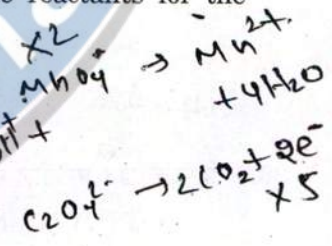 reactants for the
×2
MnO4⁻ → Mn²⁺
H⁺ +
+4H2O
C2O4²⁻ → 2CO2 + 2e⁻
×5